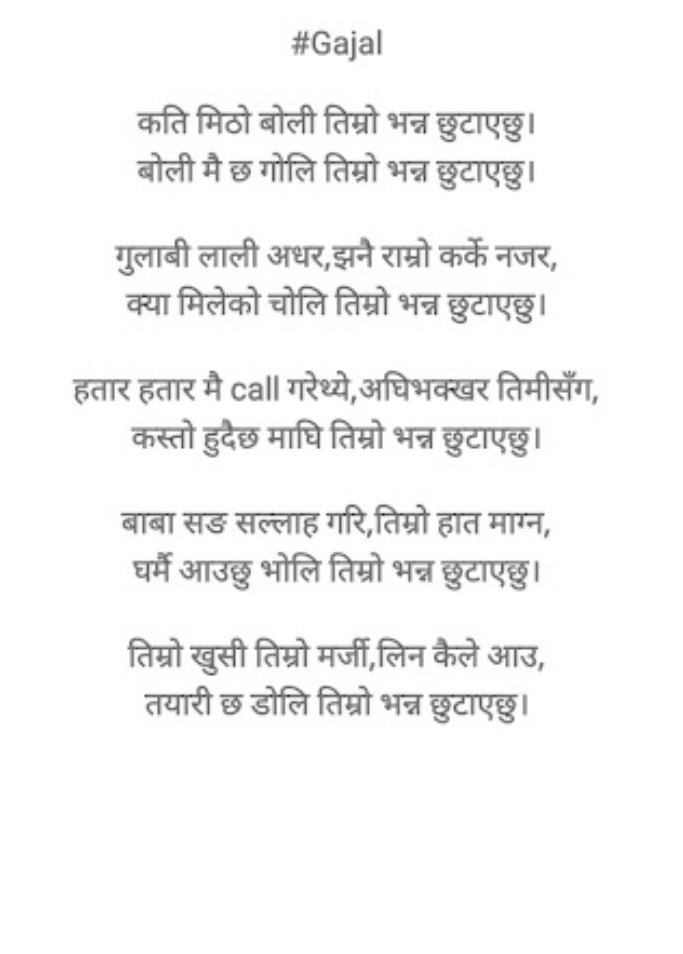 #Gajal
कति मिठो बोली तिम्रो भन्न छुटाएछु।
बोली मै छ गोलि तिम्रो भन्न छुटाएछु।
गुलाबी लाली अधर,झनै राम्रो कर्के नजर,
क्या मिलेको चोलि तिम्रो भन्न छुटाएछु।
हतार हतार मै call गरेथ्ये,अघिभक्खर तिमीसँग,
कस्तो हुदैछ माघि तिम्रो भन्न छुटाएछु।
बाबा सङ सल्लाह गरि,तिम्रो हात माग्न,
घर्मै आउछु भोलि तिम्रो भन्न छुटाएछु।
तिम्रो खुसी तिम्रो मर्जी,लिन कैले आउ,
तयारी छ डोलि तिम्रो भन्न छुटाएछु।